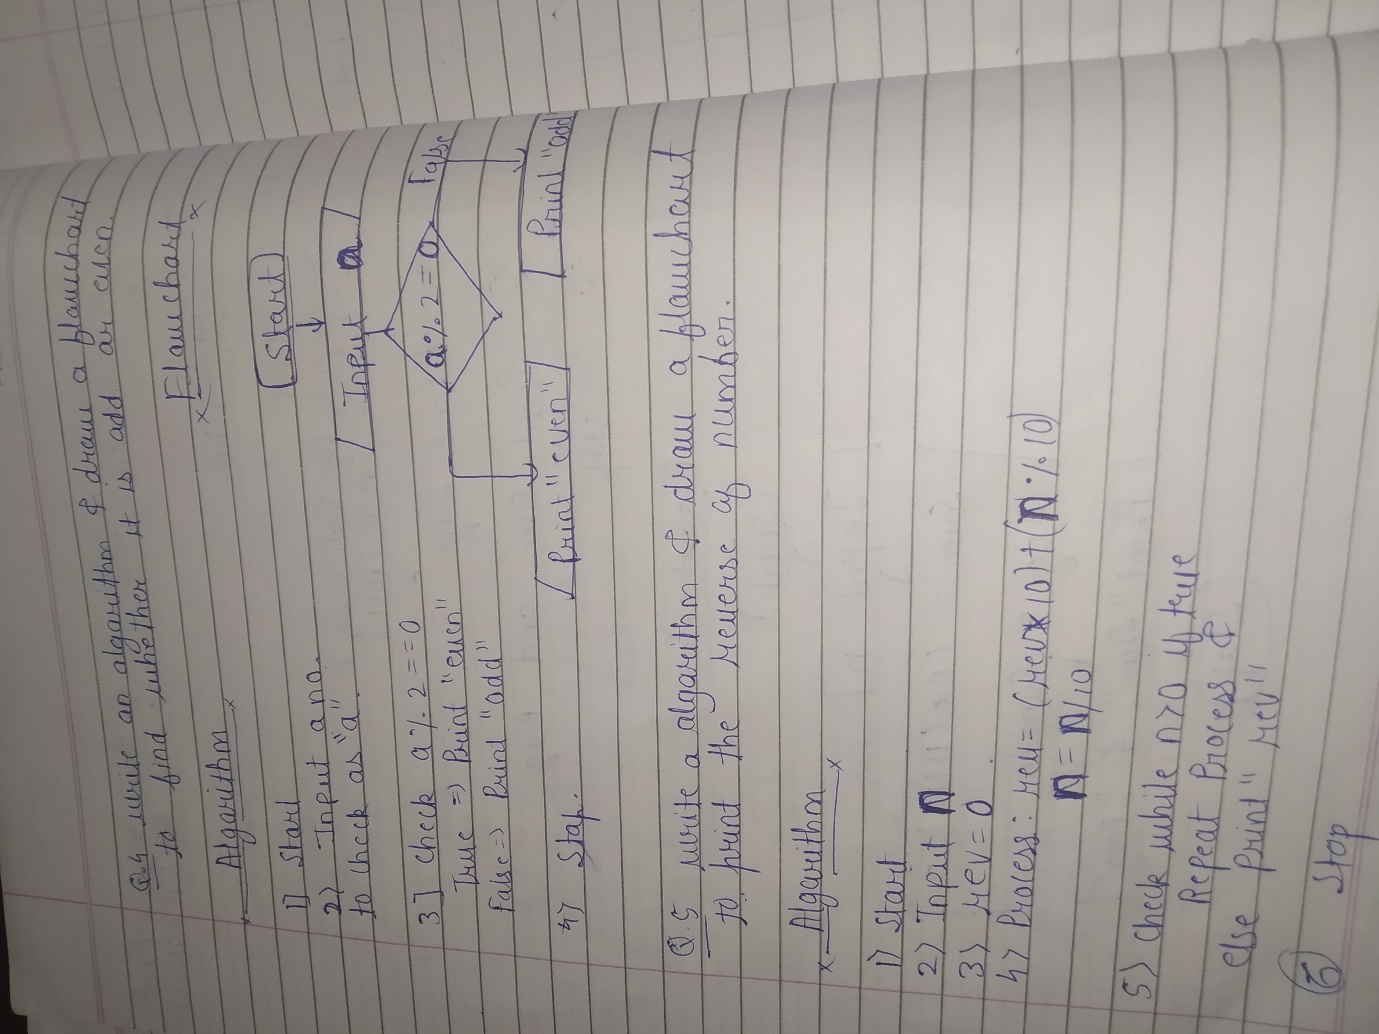 Q.4 write an algarithm & draw a flawchart
to find whether it is add ar even.
Algarithm
1) Start
2) Input a no.
to check as "a"
3] check a % 2 == 0
True => Print "even"
False => Print "odd"
4) Stap.
Flawchard
Start
Input a
a % 2 = 0
False
Print "even"
Print "add
Q.5 write a algarithm & draw a flawchart
to print the reverse af number.
Algarithm
1) Start
2) Input n
3) rev = 0
4) Process: rev = (rev x 10) + (n % 10)
n = n/10
5) Check while n>0 if true
Repeat Process &
else Print" rev"
6 Stop